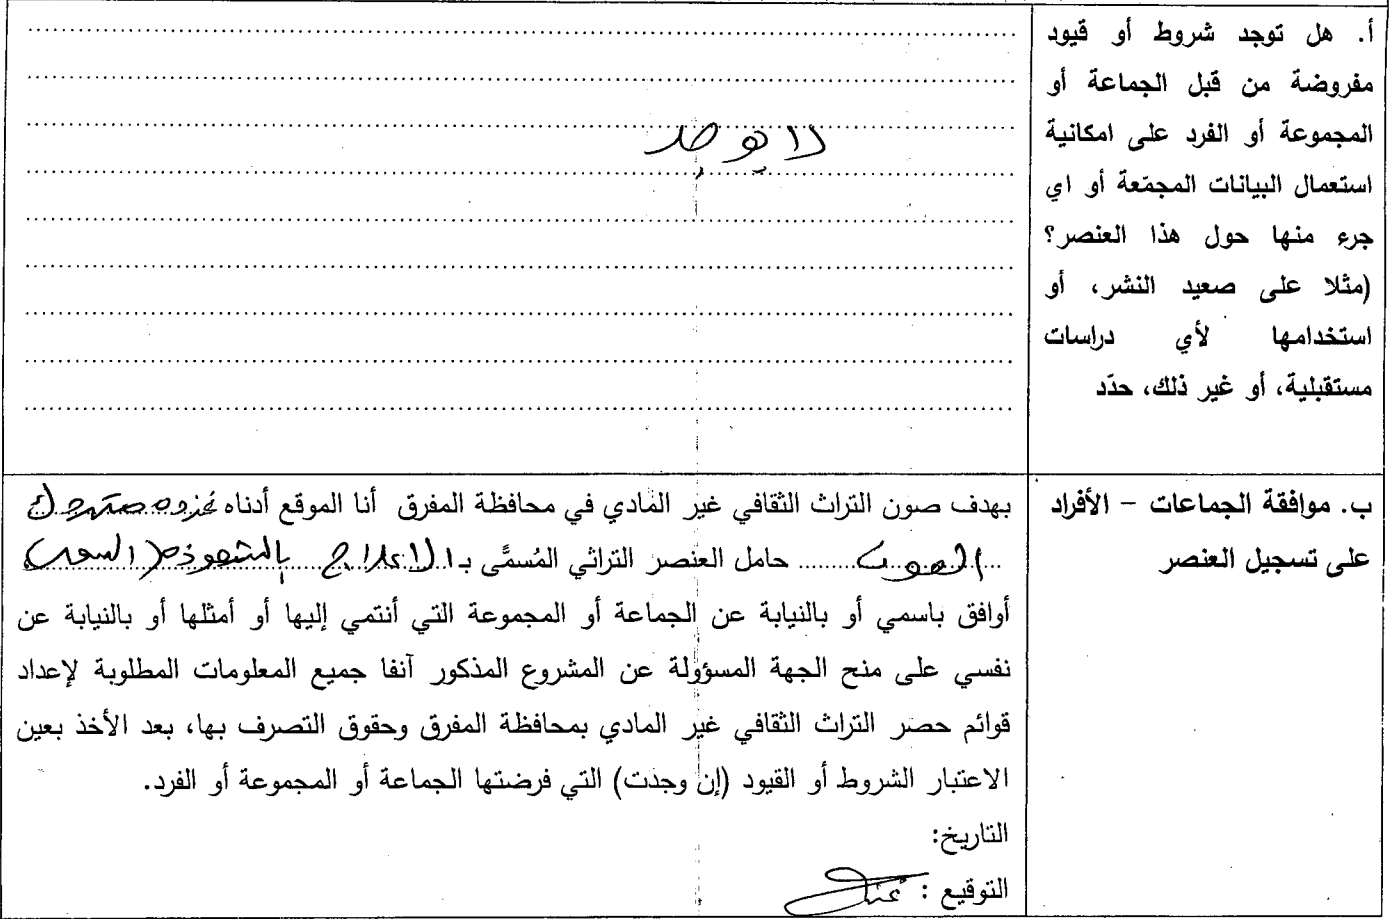 أ. هل توجد شروط أو قيود
مفروضة من قبل الجماعة أو
المجموعة أو الفرد على امكانية
استعمال البيانات المجمّعة أو اي
جرء منها حول هذا العنصر؟
(مثلا على صعيد النشر، أو
استخدامها لأي دراسات
مستقبلية، أو غير ذلك، حدّد
لا يوجد
ب. موافقة الجماعات – الأفراد
على تسجيل العنصر
بهدف صون التراث الثقافي غير المادي في محافظة المفرق أنا الموقع أدناه
حامل العنصر التراثي المُسمَّى بـ العلاج بالشعوذة (السحر)
أوافق باسمي أو بالنيابة عن الجماعة أو المجموعة التي أنتمي إليها أو أمثلها أو بالنيابة عن
نفسي على منح الجهة المسؤولة عن المشروع المذكور آنفا جميع المعلومات المطلوبة لإعداد
قوائم حصر التراث الثقافي غير المادي بمحافظة المفرق وحقوق التصرف بها، بعد الأخذ بعين
الاعتبار الشروط أو القيود (إن وجدت) التي فرضتها الجماعة أو المجموعة أو الفرد.
التاريخ:
التوقيع :